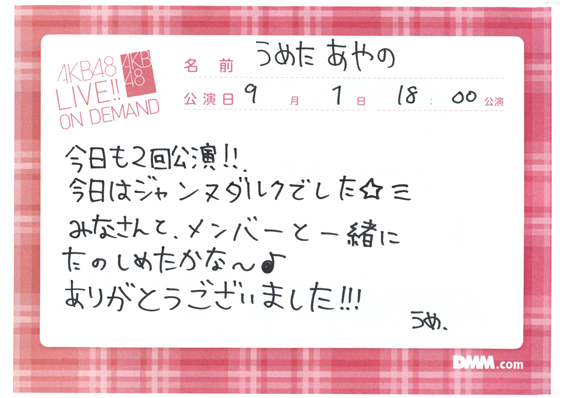 AKB48
LIVE!!
ON DEMAND
AKB
48
名前 うめた あやの
公演日 9 月 1 日 18 : 00 公演
今日も2回公演!!
今日はジャンヌダルクでした☆ミ
みなさんと、メンバーと一緒に
たのしめたかな〜♪
ありがとうございました!!!
うめ.
DMM.com